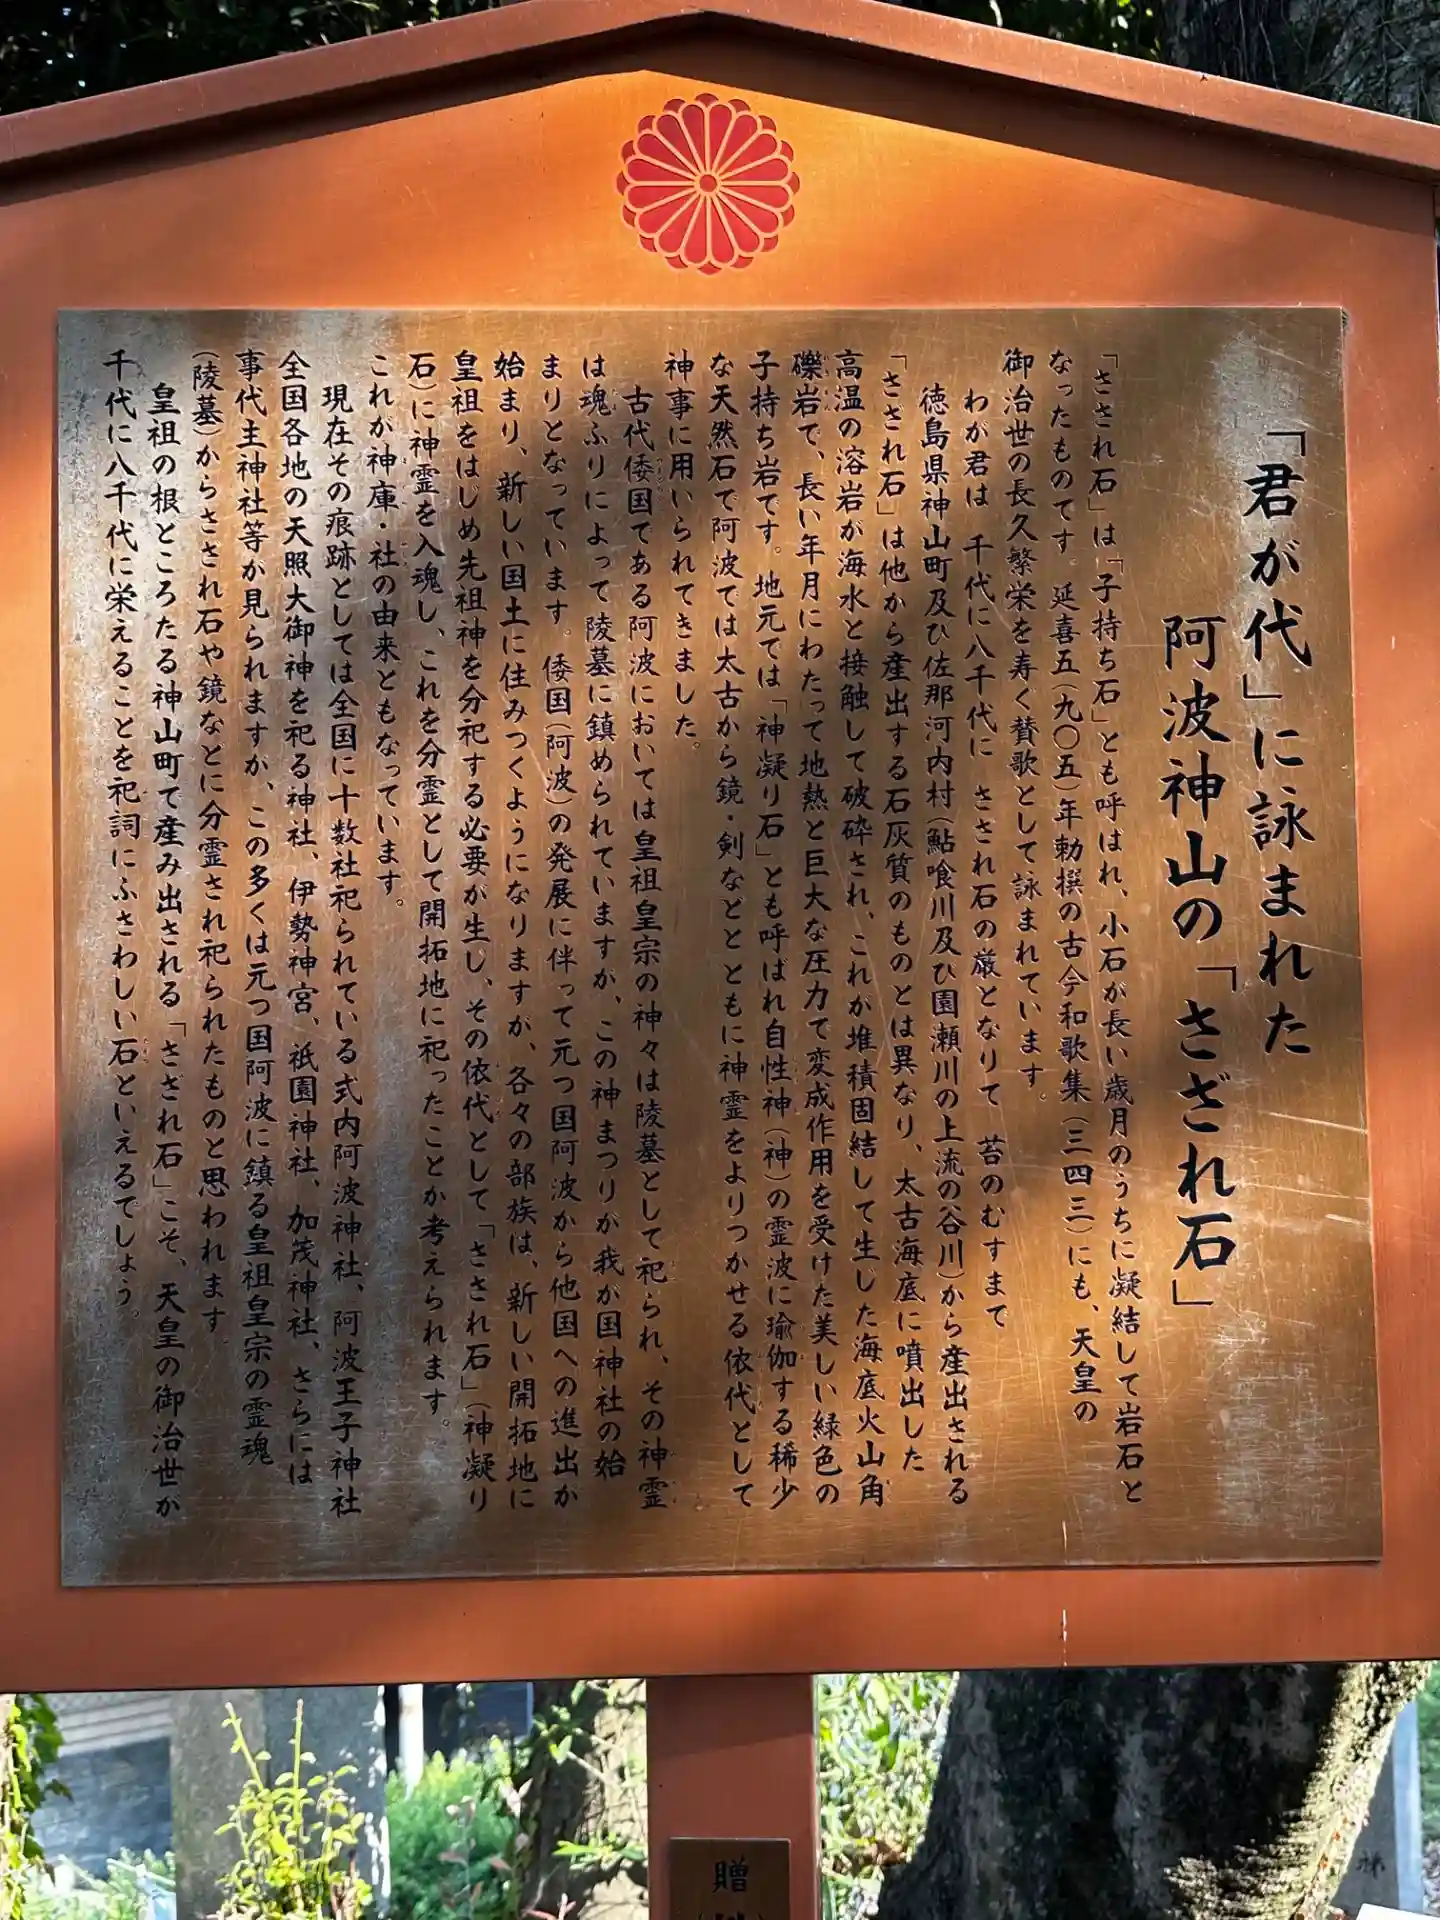 「君が代」に詠まれた
阿波神山の「さざれ石」
「さされ石」は「子持ち石」とも呼ばれ、小石が長い歳月のうちに凝結して岩石と
なったものてす。延喜五(九〇五)年勅撰の古今和歌集(三四三)にも、天皇の
御治世の長久繁栄を寿く賛歌として詠まれています。
わが君は 千代に八千代に さされ石の厳となりて 苔のむすまて
徳島県神山町及ひ佐那河内村(鮎喰川及ひ園瀬川の上流の谷川)から産出される
「さされ石」は他から産出する石灰質のものとは異なり、太古海底に噴出した
高温の溶岩が海水と接触して破砕され、これが堆積固結して生した海底火山角
礫岩で、長い年月にわたって地熱と巨大な圧力で変成作用を受けた美しい緑色の
子持ち岩てす。地元ては「神凝り石」とも呼ばれ自性神(神)の霊波に瑜伽する稀少
な天然石で阿波ては太古から鏡・剣なとと ともに神霊をよりつかせる依代として
神事に用いられてきました。
古代倭国である阿波においては皇祖皇宗の神々は陵墓として祀られ、その神霊
は魂ふりによって陵墓に鎮められていますか、この神まつりが我か国神社の始
まりとなっています。倭国(阿波)の発展に伴って元つ国阿波から他国への進出か
始まり、新しい国土に住みつくようになりますが、各々の部族は、新しい開拓地に
皇祖をはじめ先祖神を分祀する必要が生し、その依代として「さされ石」(神凝り
石)に神霊を入魂し、これを分霊として開拓地に祀ったことか考えられます。
これが神庫・社の由来ともなっています。
現在その痕跡としては全国に十数社祀られている式内阿波神社、阿波王子神社
全国各地の天照大御神を祀る神社、伊勢神宮、祇園神社、加茂神社、さらには
事代主神社等か見られますか、この多くは元つ国阿波に鎮る皇祖皇宗の霊魂
(陵墓)からさされ石や鏡なとに分霊され祀られたものと思われます。
皇祖の根ところたる神山町て産み出される「さざれ石」こそ、天皇の御治世か
千代に八千代に栄えることを祀詞にふさわしい石といえるでしょう。
贈